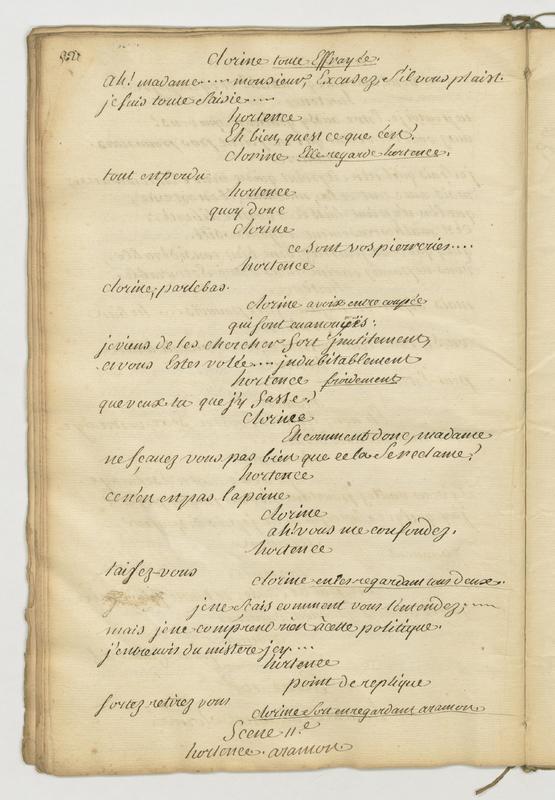 clorine toute Effrayée.
ah! madame.... monsieur, Excusez, s'il vous plaist.
je suis toute saisie....
hortence
Eh bien, quest ce que c'est?
clorine Elle regarde hortence.
tout est perdu
hortence
quoy donc
clorine
ce sont vos pierreries....
hortence
clorine, parle bas.
clorine a voix entre coupée
qui sont evanouies:
je viens de les chercher fort jnutilement,
et vous Estes volée... jndubitablement
hortence froidement
que veux tu que j'y fasse?
clorine
Eh comment donc, madame
ne sçavez vous pas bien que cela se reclame?
hortence
ce n'en est pas la peine
clorine
ah! vous me confondez.
hortence
taisez-vous
clorine en les regardant tous deux.
je ne sçais comment vous l'entendez;
mais je ne comprend rien à cette politique.
j'entrevois du mistere jcy....
hortence
point de replique
sortez retirez vous
clorine sort en regardant aramon
Scene 11.e
hortence. aramon